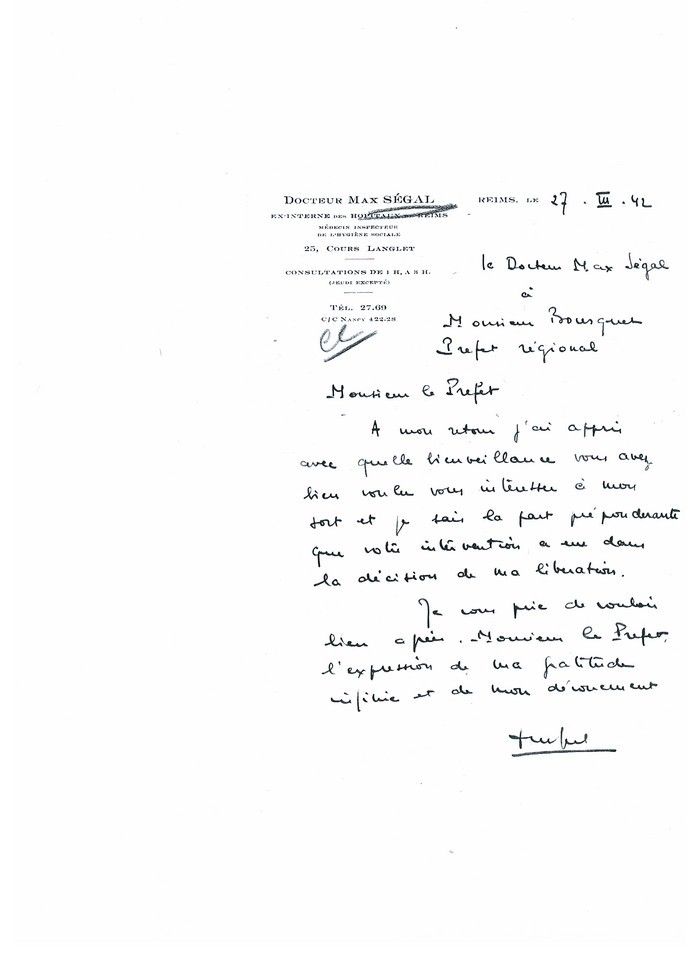 DOCTEUR MAX SÉGAL
EX-INTERNE DES HOPITAUX DE REIMS
MÉDECIN INSPECTEUR
DE L'HYGIÈNE SOCIALE
25, COURS LANGLET
CONSULTATIONS DE 1 H. A 3 H.
(JEUDI EXCEPTÉ)
TÉL. 27.69
C/C NANCY 422.28
REIMS, LE 27 . III . 42
le Docteur Max Ségal
à
Monsieur Bousquet
Prefet régional
Monsieur le Prefet
A mon retour j'ai appris
avec quelle bienveillance vous avez
bien voulu vous intéresser à mon
sort et je sais la part préponderante
que votre intervention a eue dans
la décision de ma liberation.
Je vous prie de vouloir
bien agréer, Monsieur le Prefet,
l'expression de ma gratitude
infinie et de mon dévouement